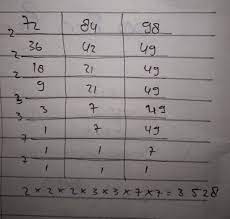 2 72 84 98
2 36 42 49
2 18 21 49
3 9 21 49
3 3 7 49
7 1 7 49
7 1 1 7
1 1 1
2 × 2 × 2 × 3 × 3 × 7 × 7 = 3528